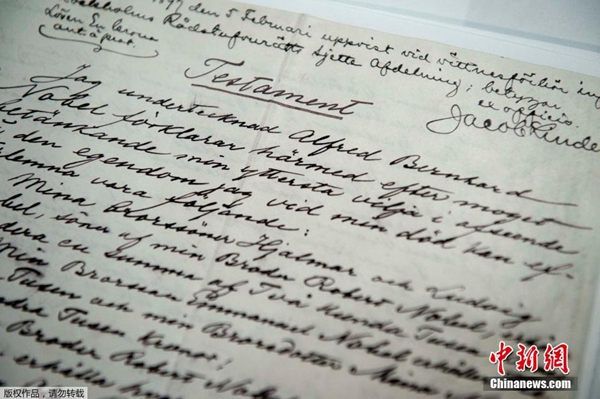 1897 den 5 Februari uppvist vid vittnesförhör inf
Stockholms Rådstufvurätts sjette Afdelning; betygar
Lösen En krona
ex officio.
Testament
Jag undertecknad Alfred Bernhard
Nobel förklarar härmed efter moget
betänkande min yttersta vilja i afseende
den egendom jag vid min död kan ef-
terlemna vara följande:
Mina Brorsöner Hjalmar och Ludvig
bel, söner af min Broder Robert Nobel,
en Summa af Två Hundra Tusen
Min Brorson Emmanuel Nobel erhåller
Tusen och min Brorsdotter Mina
dra Tusen Kronor;
Broder Robert Nobels
erhålla
中新网
Chinanews.com
RESTRICTED (FGE) | 2015/11/5 17:04:22